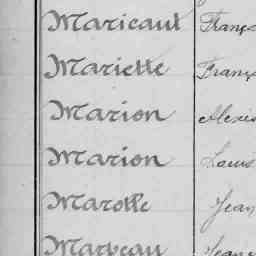 Maricaut Franç
Mariette Franç
Marion Alexis
Marion Louis
Marolle Jean
Marveau Jean